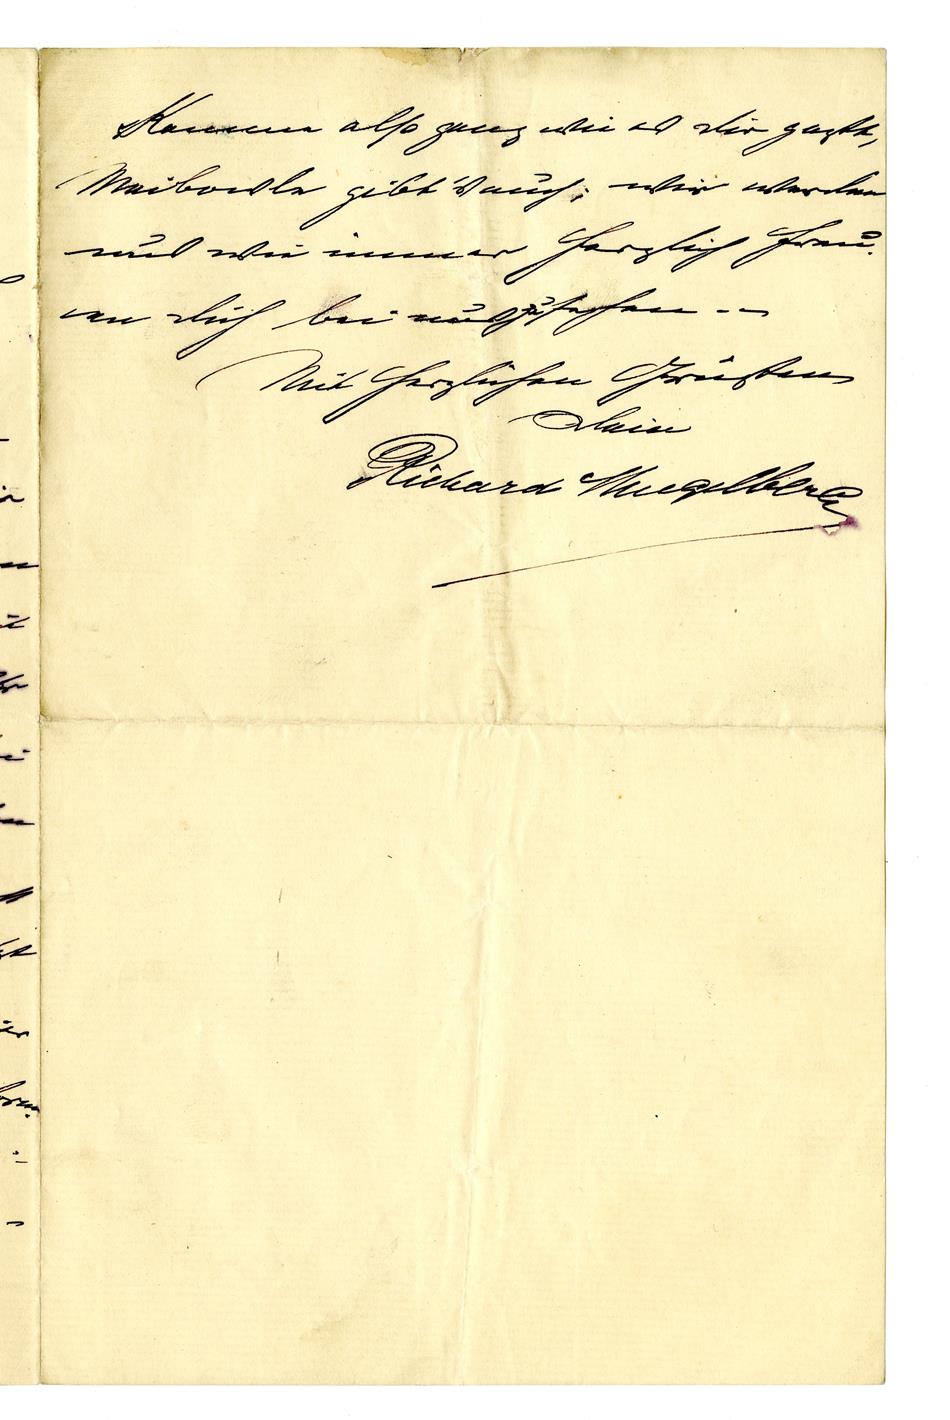 Komme also ganz wie es dir paßt,
Maibowle gibt's auch; wir werden
uns wie immer herzlich freu-
en dich bei uns zu sehen. --
Mit herzlichen Grüßen
Dein
Richard